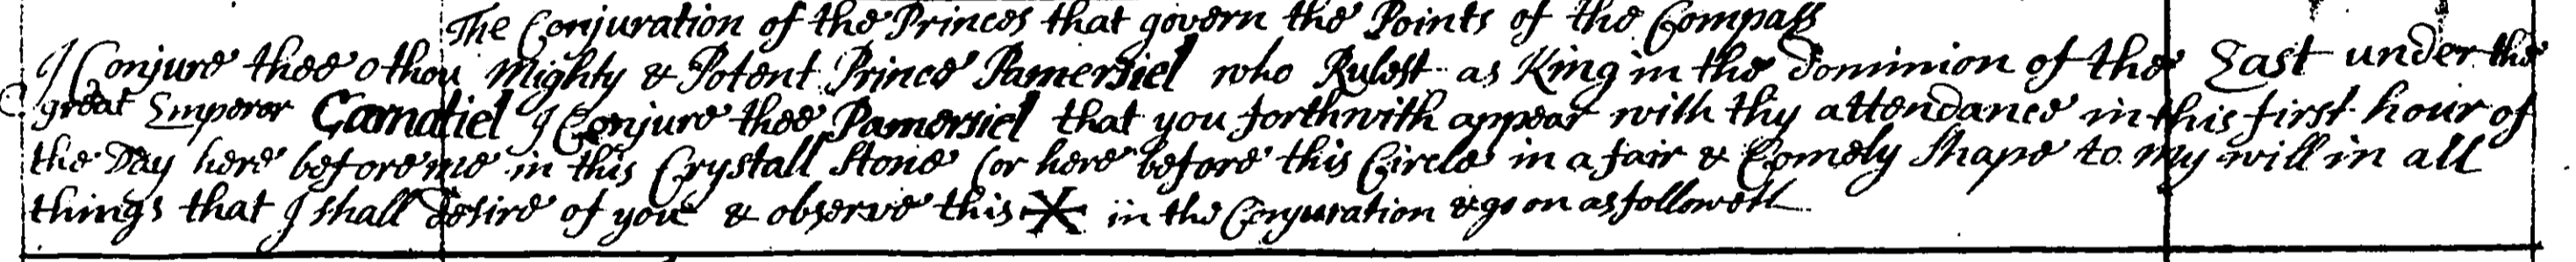 The Conjuration of the Princes that govern the Points of the Compass
I Conjure thee o thou Mighty & Potent Prince Pamersiel who Rulest as King in the Dominion of the East under the
great Emperor Carnatiel I Conjure thee Pamersiel that you forthwith appear with thy attendance in this first hour of
the Day here before me in this Crystall Stone (or here before this Circle in a fair & Comely Shape to my will in all
things that I shall desire of you & observe this X in the Conjuration & go on as followeth